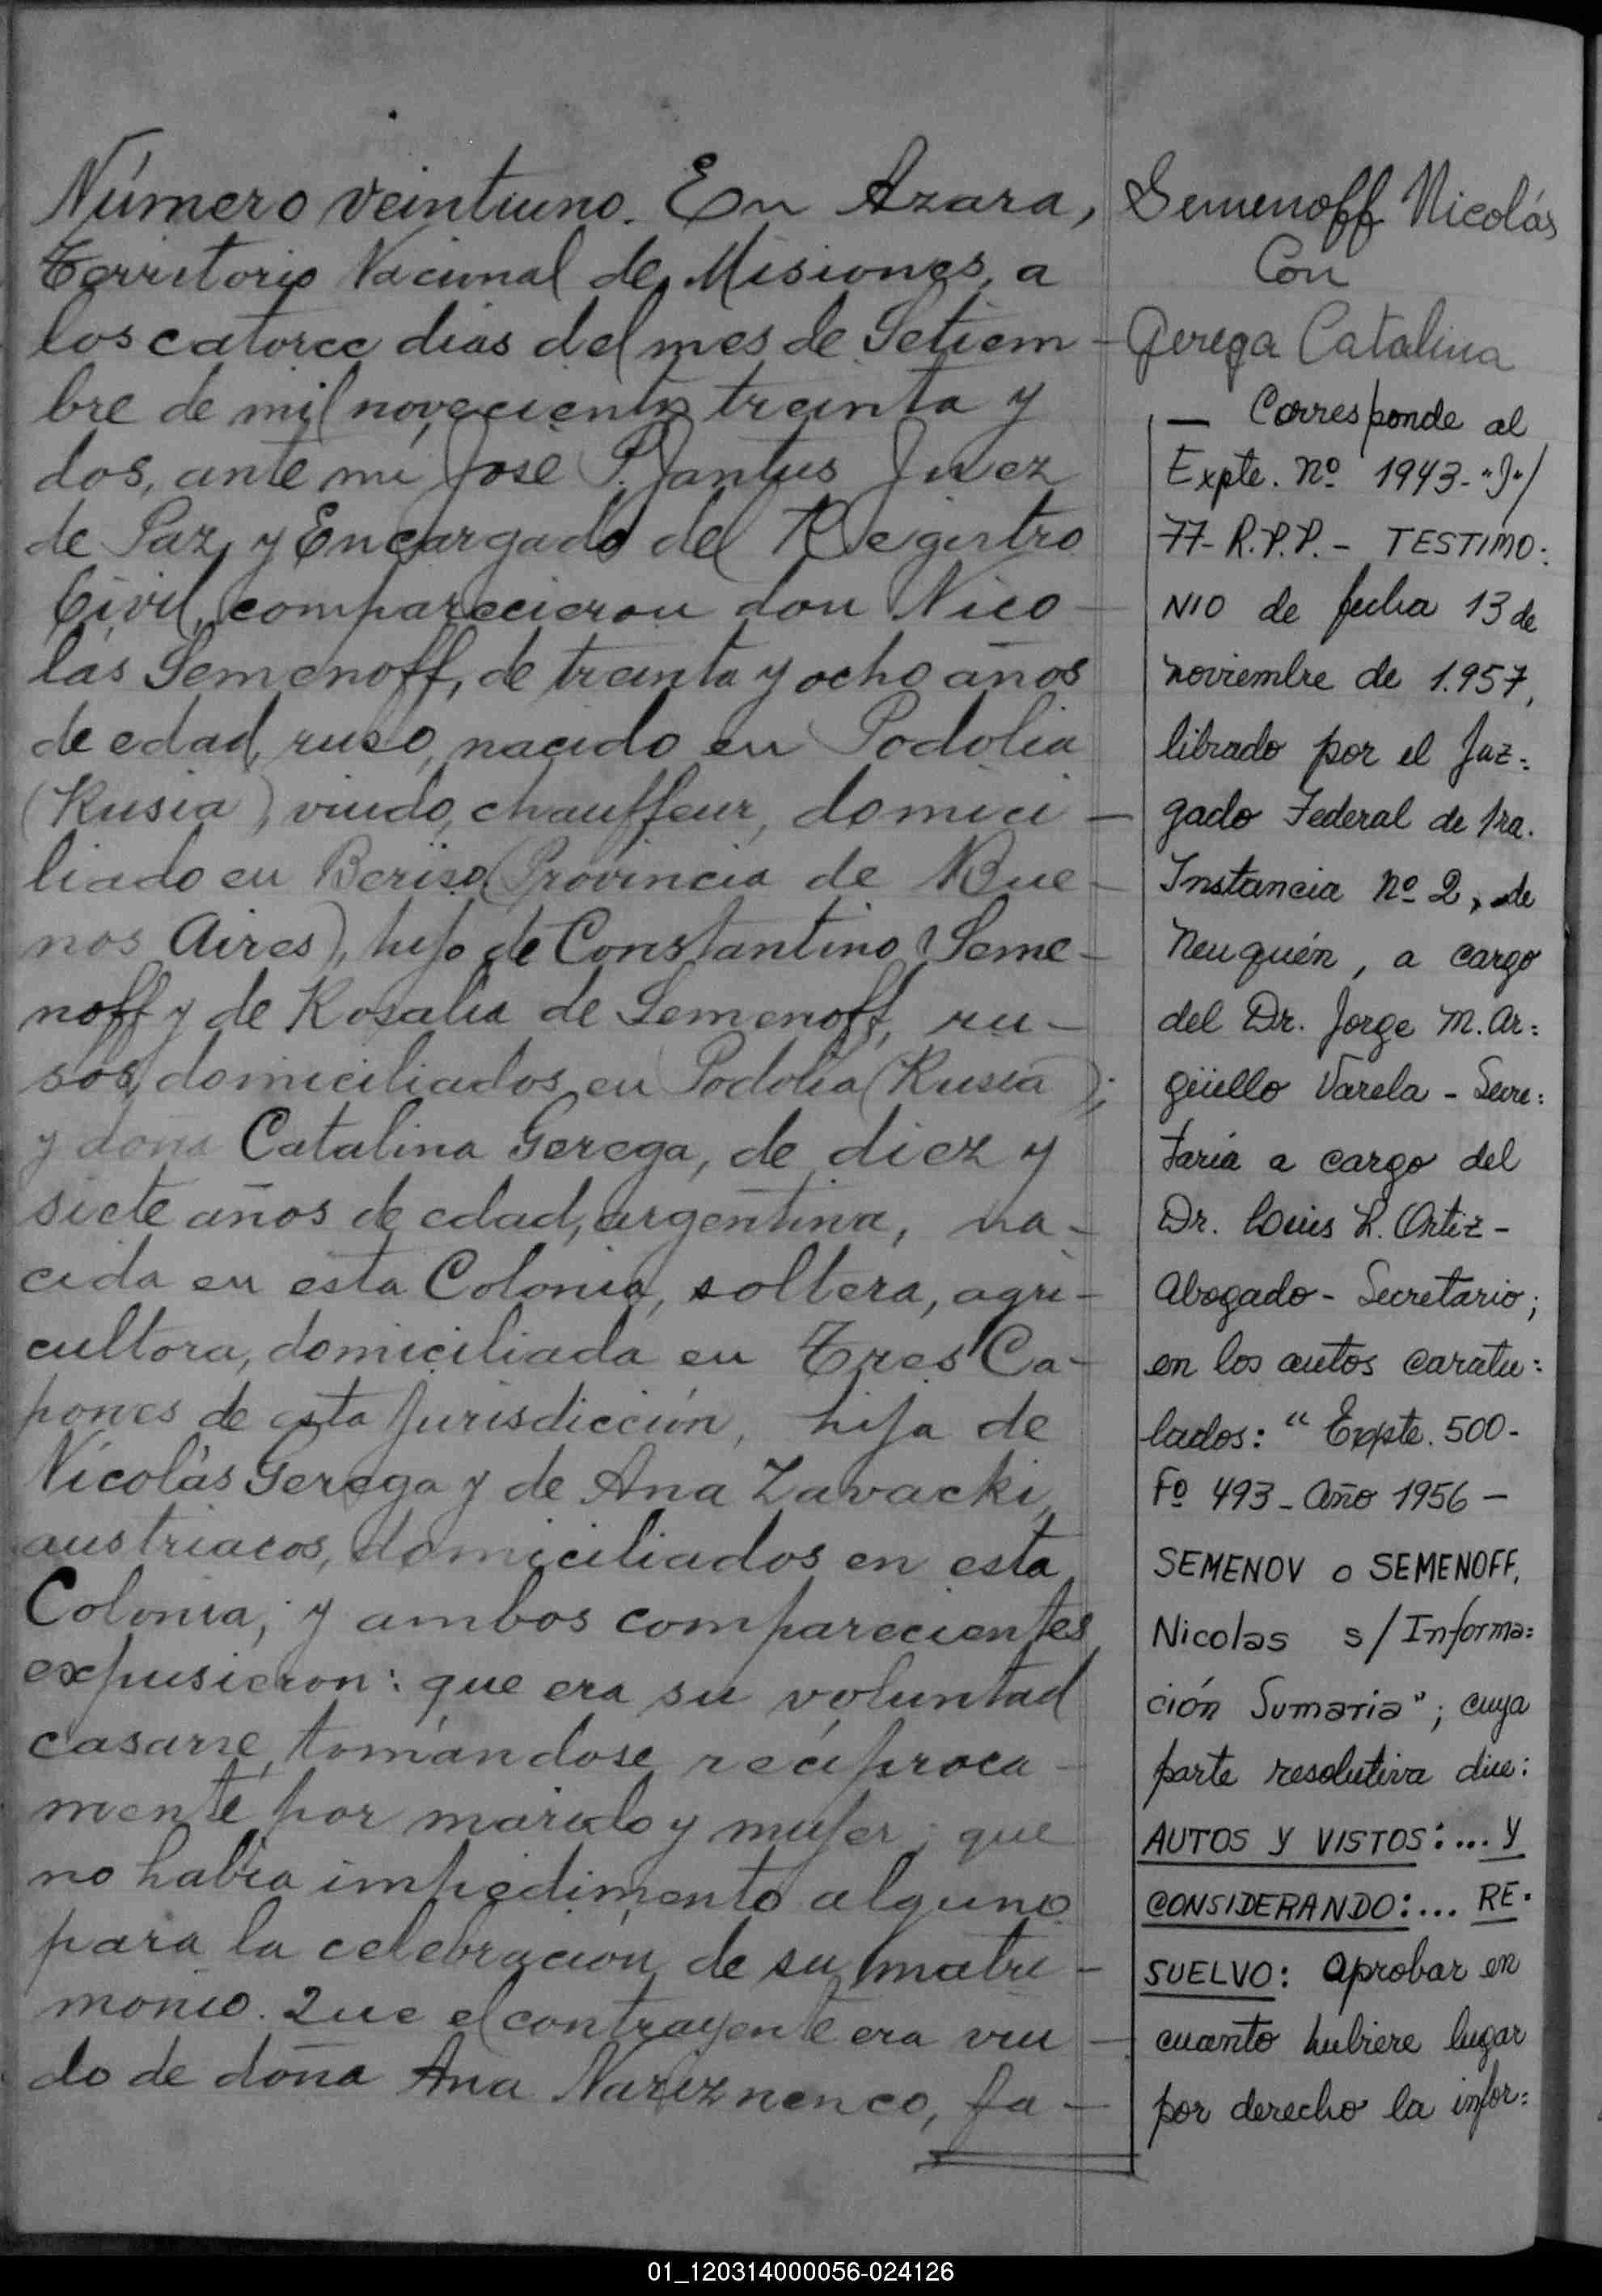 Número veintiuno. En Azara,
Territorio Nacional de Misiones, a
los catorce dias del mes de Setiem-
bre de mil novecientos treinta y
dos, ante mi José P. Jantus Juez
de Paz y Encargado del Registro
Civil, comparecieron don Nico-
lás Semenoff, de treinta y ocho años
de edad, ruso, nacido en Podolia
(Rusia), viudo, chauffeur, domici-
liado en Beriso (Provincia de Bue-
nos Aires), hijo de Constantino Seme-
noff y de Rosalia de Semenoff, ru-
sos, domiciliados en Podolia (Rusia);
y doña Catalina Gerega, de diez y
siete años de edad, argentina, na-
cida en esta Colonia, soltera, agri-
cultora, domiciliada en Tres Ca-
pones de esta Jurisdicción, hija de
Nicolás Gerega y de Ana Zavacki,
austriacos, domiciliados en esta
Colonia; y ambos comparecientes
expusieron: que era su voluntad
casarse, tomándose recíproca-
mente por marido y mujer; que
no habia impedimento alguno
para la celebración de su matri-
monio. Que el contrayente era viu-
do de doña Ana Nariznenco, fa-
Semenoff Nicolás
Con
Gerega Catalina
— Corresponde al
Expte. Nº 1943-"J"/
77-R.P.P.- TESTIMO:
NIO de fecha 13 de
noviembre de 1.957,
librado por el Juz=
gado Federal de 1ra.
Instancia Nº 2, de
Neuquén, a cargo
del Dr. Jorge M. Ar=
güello Varela - Secre=
taría a cargo del
Dr. Louis R. Ortiz-
Abogado - Secretario;
en los autos caratu=
lados: "Expte. 500-
Fº 493 - Año 1956 -
SEMENOV o SEMENOFF,
Nicolas s/Informa=
ción Sumaria"; cuya
parte resolutiva dice:
AUTOS Y VISTOS:... Y
CONSIDERANDO:... RE-
SUELVO: Aprobar en
cuanto hubiere lugar
por derecho la infor=
01_120314000056-024126